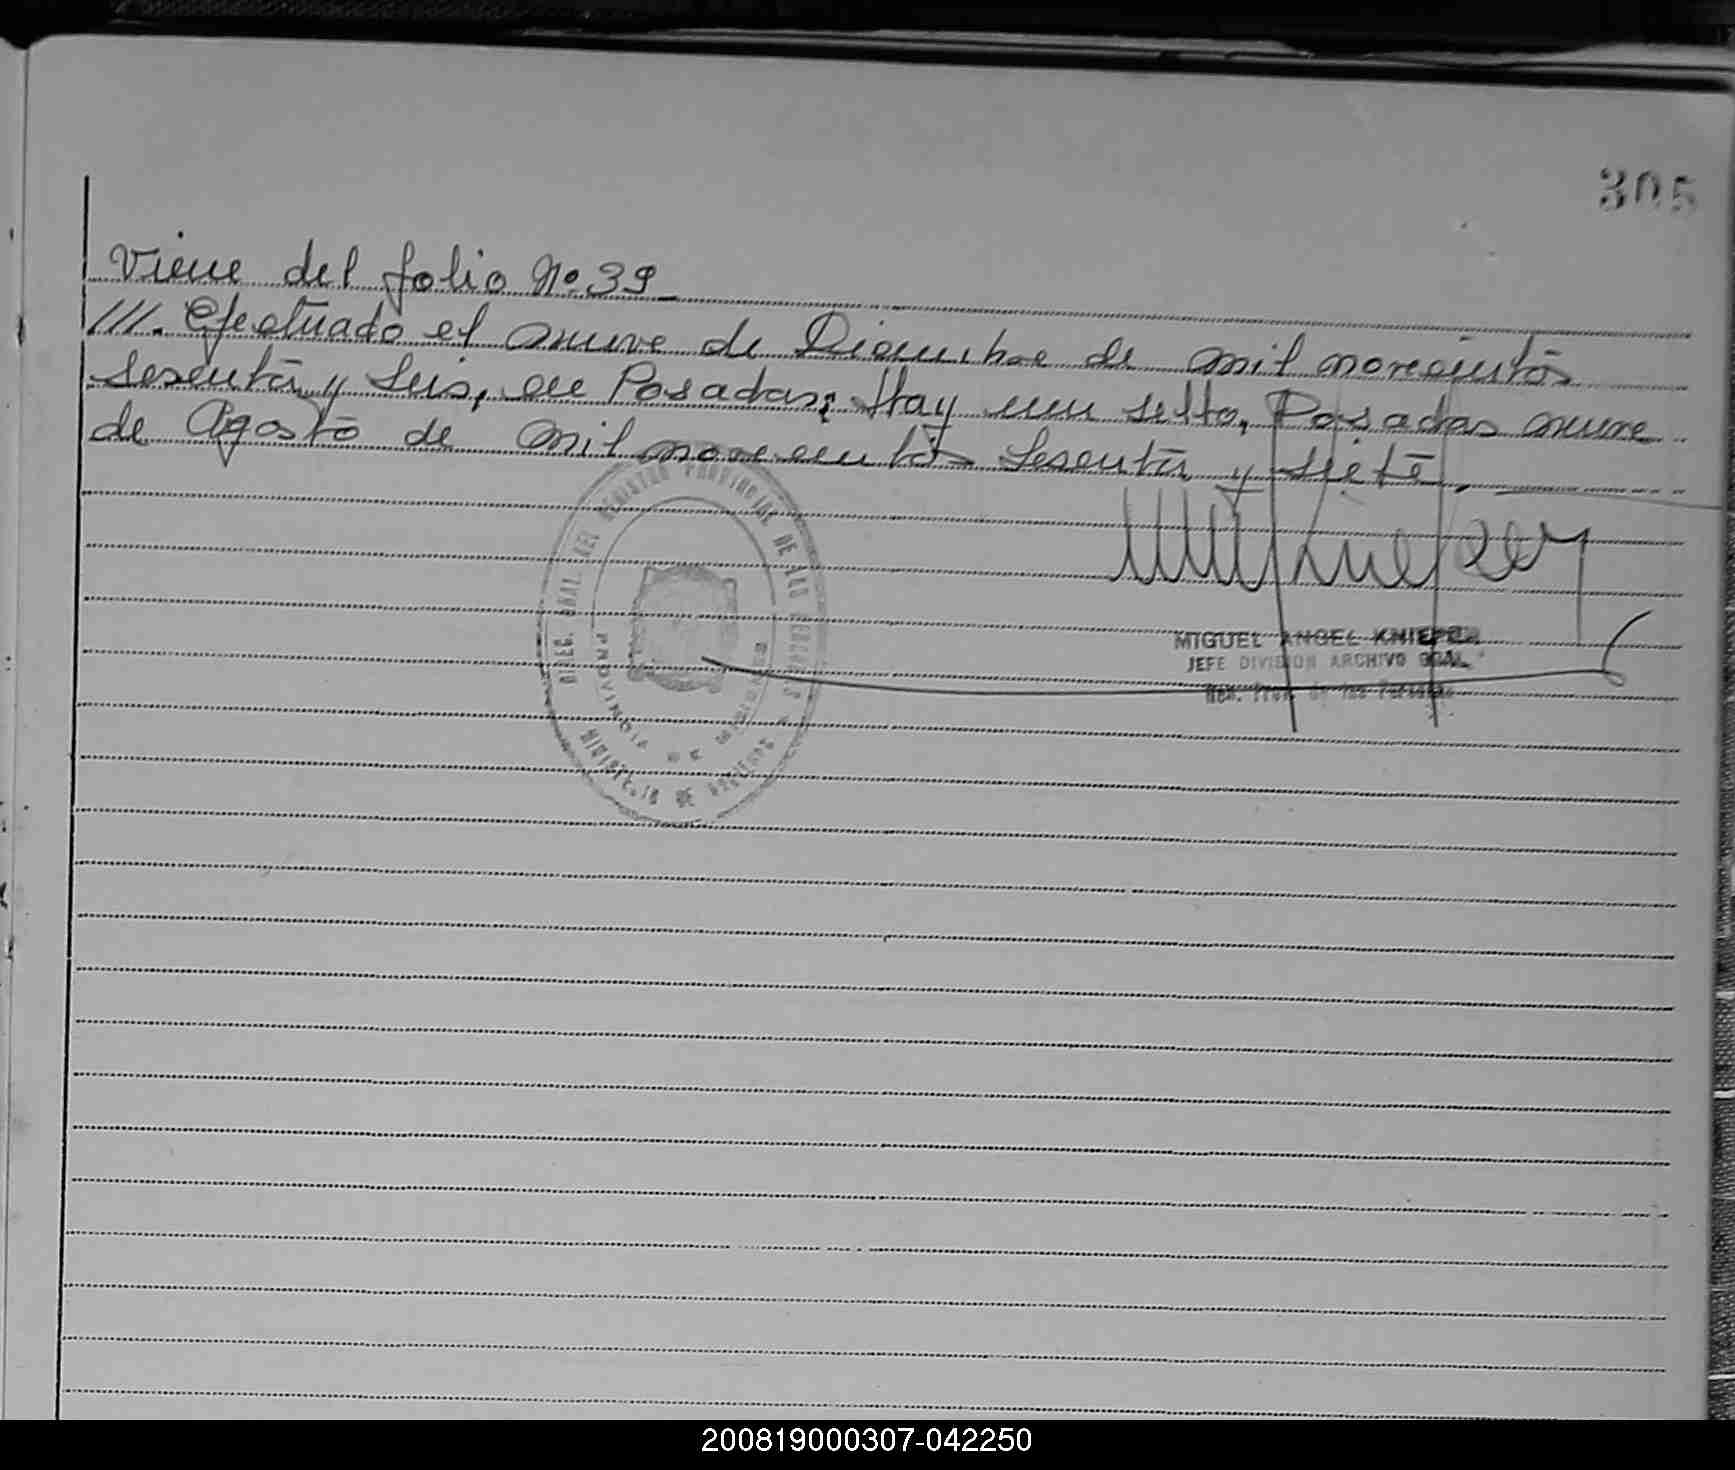 305
Viene del folio Nº 39_
///. Efectuado el nueve de Diciembre de mil novecientos
sesenta y seis, en Posadas; Hay un sello, Posadas nueve
de Agosto de mil novecientos sesenta y siete,
MIGUEL ANGEL KNIEPER
JEFE DIVISION ARCHIVO GRAL
Reg. Prov. de las Personas
DIREC. GRAL DEL REGISTRO PROVINCIAL DE LAS PERSONAS
PROVINCIA DE MISIONES
MINISTERIO DE GOBIERNO
200819000307-042250